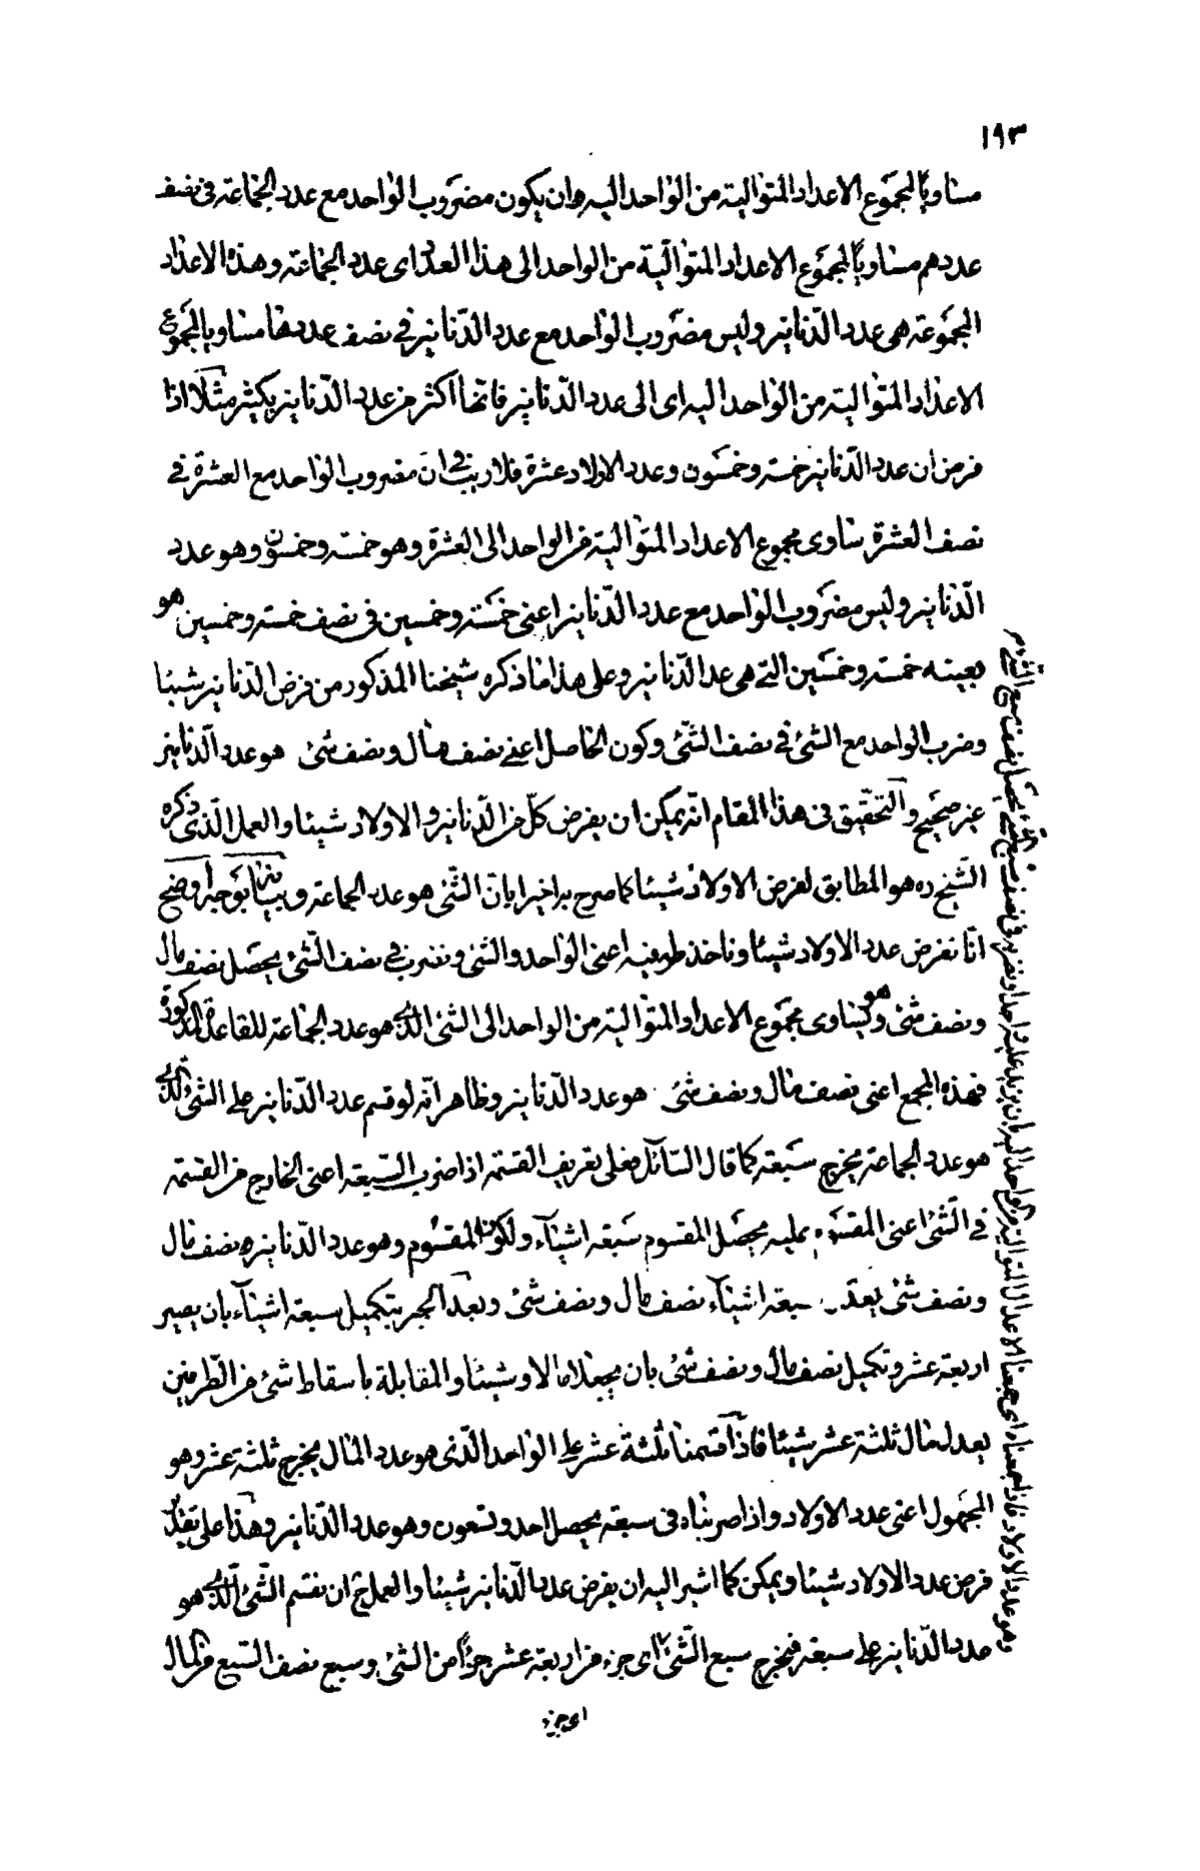 ١٩٣
مساويا لمجموع الاعداد المتوالية من الواحد اليه وان يكون مضروب الواحد مع عدد الجماعة فى نصف
عددهم مساويا لمجموع الاعداد المتوالية من الواحد الى هذا العدد اى عدد الجماعة وهذه الاعداد
المجموعة هى عدد الدّنانير وليس مضروب الواحد مع عدد الدّنانير فى نصف عددها مساويا لمجموع
الاعداد المتوالية من الواحد اليه اى الى عدد الدّنانير فانّها اكثر من عدد الدّنانير بكثير مثلا اذا
فرض ان عدد الدّنانير خمسة وخمسون وعدد الاولاد عشرة فلا ريب فى انّ مضروب الواحد مع العشرة فى
نصف العشرة يساوى مجموع الاعداد المتوالية من الواحد الى العشرة وهو خمسة وخمسون وهو عدد
الدّنانير وليس مضروب الواحد مع عدد الدّنانير اعنى خمسة وخمسين فى نصف خمسة وخمسين هو
بعينه خمسة وخمسين التى هى عدد الدّنانير وعلى هذا ما ذكره شيخنا المذكور من فرض الدّنانير شيئا
وضرب الواحد مع الشئ فى نصف الشّئ وكون الحاصل اعنى نصف مال ونصف شئ هو عدد الدّنانير
غير صحيح والتحقيق فى هذا المقام انّه يمكن ان يفرض كلّ من الدّنانير والاولاد شيئا والعمل الّذى ذكره
الشّيخ ره هو المطابق لفرض الاولاد شيئا كما صرح به اخيرا بانّ الشّئ هو عدد الجماعة وبيانه بوجه اوضح
انّا نفرض عدد الاولاد شيئا وناخذ طرفيه اعنى الواحد والشئ ونضرب فى نصف الشّئ يحصل نصف مال
ونصف شئ وهو يساوى مجموع الاعداد المتوالية من الواحد الى الشئ الّذى هو عدد الجماعة للقاعدة المذكورة
فهذه المجمع اعنى نصف مال ونصف شئ هو عدد الدّنانير وظاهر انّه لو قسم عدد الدّنانير على الشئ الّذى
هو عدد الجماعة يخرج سبعة كما قال السّائل فعلى تعريف القسمة اذا ضرب السّبعة اعنى الخارج من القسمة
فى الشّئ اعنى المقسوم عليه يحصل المقسوم سبعة اشياء ولكون المقسوم وهو عدد الدّنانير نصف مال
ونصف شئ يعدل سبعة اشياء نصف مال ونصف شئ وبعد الجبر بتكميل سبعة اشياء بان يصير
اربعة عشر وتكميل نصف مال ونصف شئ بان يجعلا مالا وشيئا والمقابلة باسقاط شئ من الطّرفين
يعدل مال ثلثة عشر شيئا فاذا قسمنا ثلثة عشر على الواحد الّذى هو عدد المال يخرج ثلثة عشر وهو
المجهول اعنى عدد الاولاد واذا ضربناه فى سبعة يحصل احد وتسعون وهو عدد الدّنانير وهذا على تقدير
فرض عدد الاولاد شيئا ويمكن كما اشير اليه ان يفرض عدد الدّنانير شيئا والعمل ح ان نقسم الشّئ الّذى هو
عدد الدّنانير على سبعة فيخرج سبع الشّئ اى جزء من اربعة عشر جزأ من الشئ وسبع نصف السّبع من المال
اى جزء
وهو عدد الاولاد فاذا جمعناه اى جمعنا الاعداد المتوالية من الواحد اليه بان نزيد عليه واحدا ونضربه فى نصف سبع الشئ يحصل نصف سبع الشئ